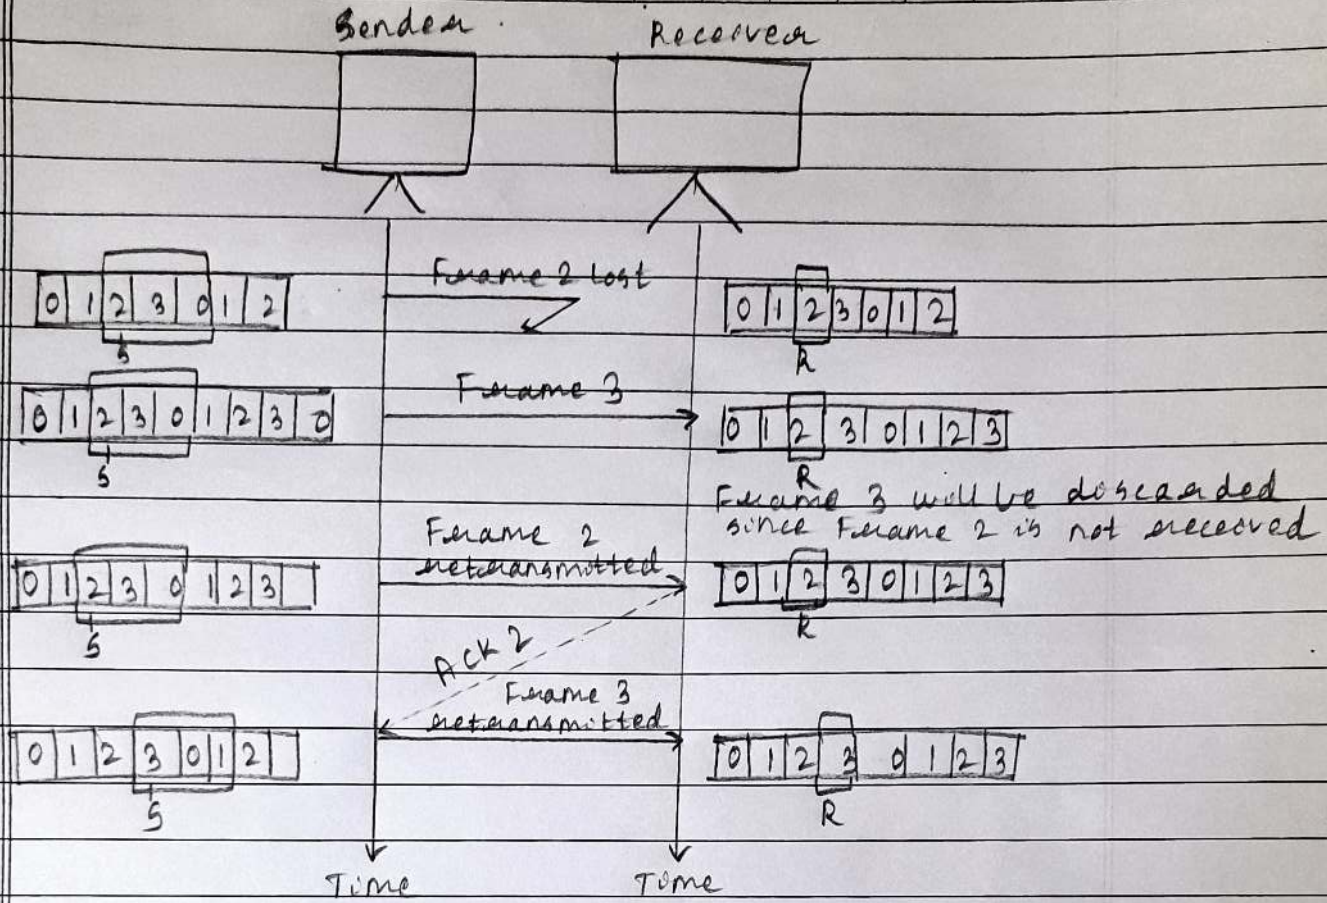 Sender Receiver
0 1 2 3 0 1 2 Frame 2 lost 0 1 2 3 0 1 2
S R
0 1 2 3 0 1 2 3 0 Frame 3 0 1 2 3 0 1 2 3
S R
Frame 3 will be discarded
since Frame 2 is not received
Frame 2
retransmitted
0 1 2 3 0 1 2 3 0 1 2 3 0 1 2 3
S R
ACK 2
Frame 3
retransmitted
0 1 2 3 0 1 2 0 1 2 3 0 1 2 3
S R
Time Time